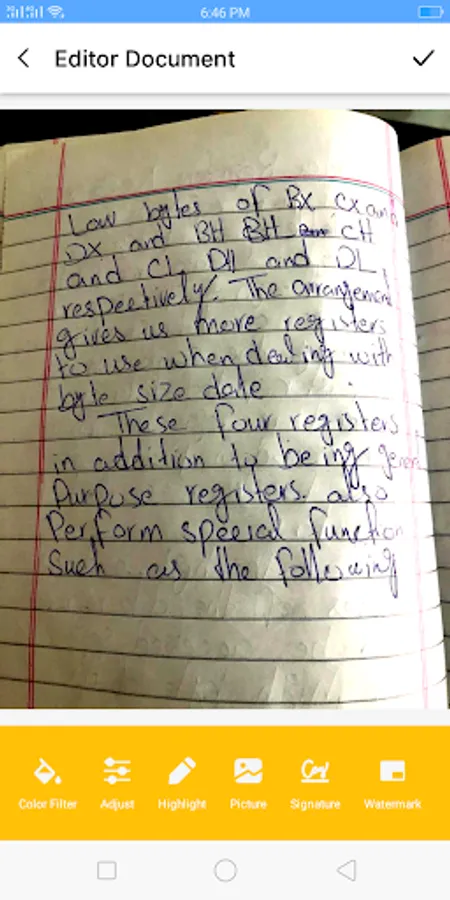 6:46 PM
Editor Document
Low bytes of BX CX and
DX and BH BH CH
and CL, DH and DL,
respectively. The arrangement
gives us more registers
to use when dealing with
byte size date
These four registers
in addition to being gener
Purpose registers. also
Perform special function
Such as the following
Color Filter
Adjust
Highlight
Picture
Signature
Watermark